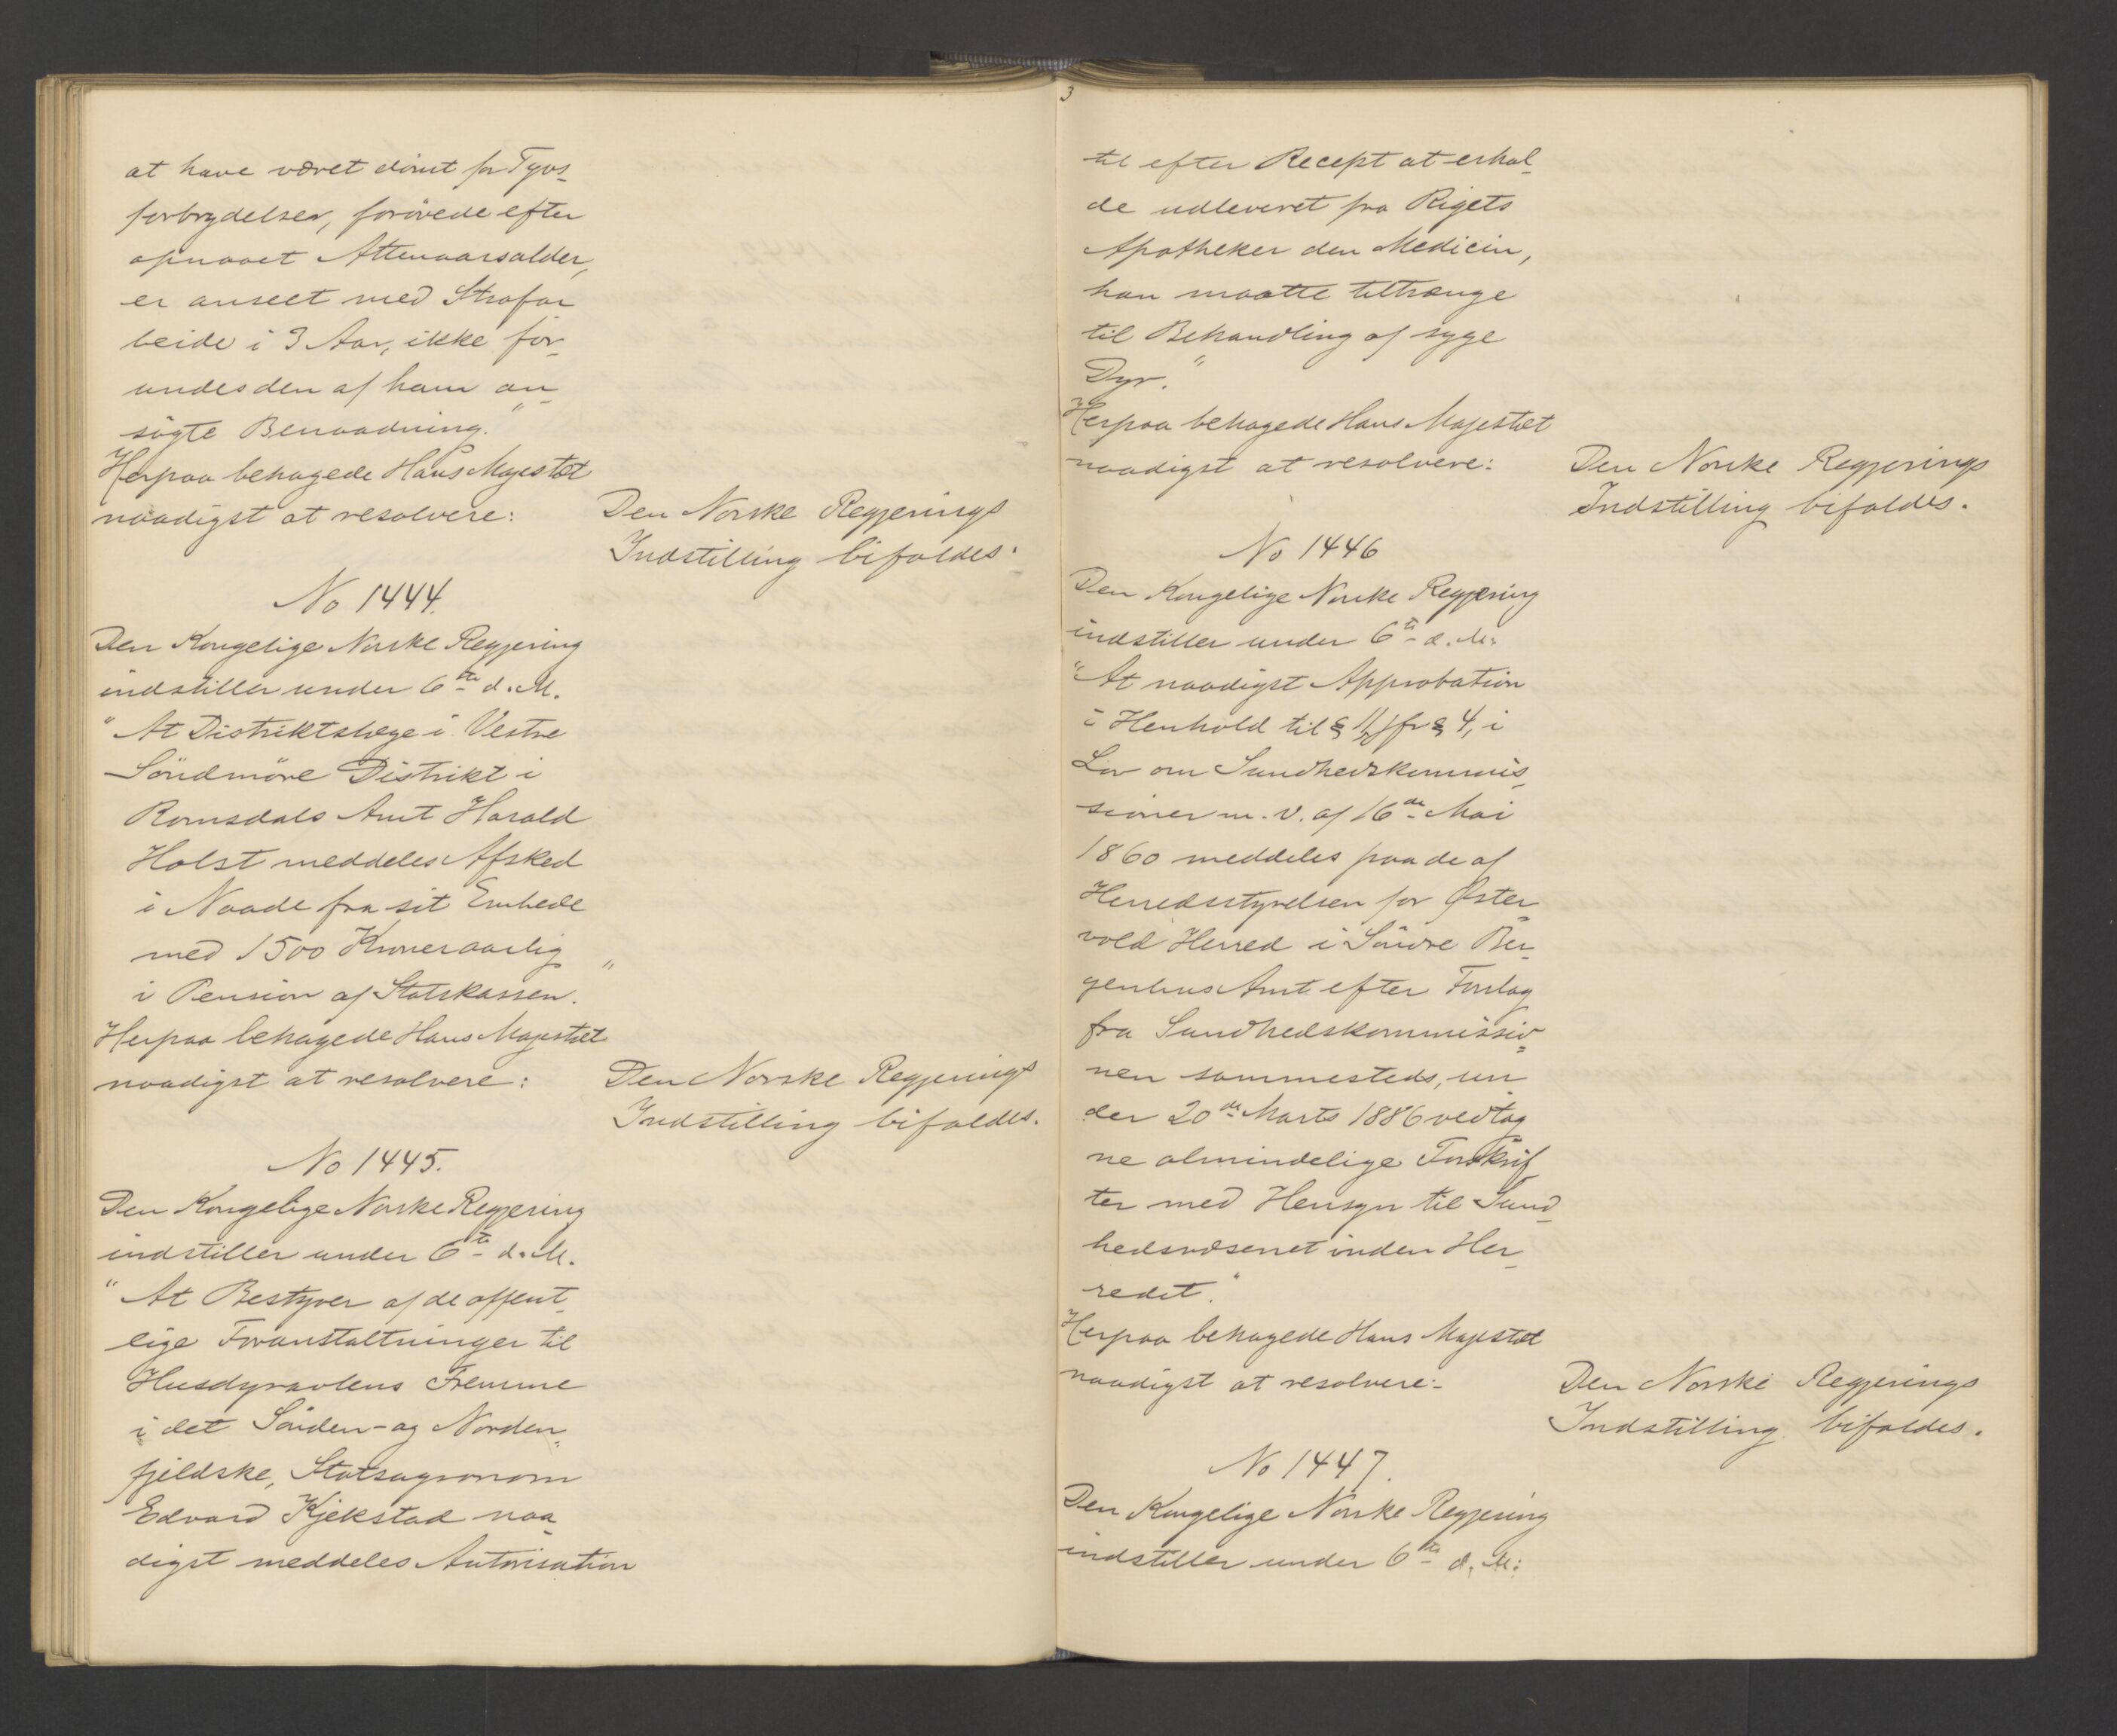 at have været dömt for Tyvs-
forbrydelser, forövede efter
opnaaet Attenaarsalder,
er anseet med Strafar
beide i 3 Aar, ikke for-
undes den af ham an-
sögte Benaadning."
Herpaa behagede Hans Majestæt
naadigst at resolvere:
Den Norske Regjerings
Indstilling bifaldes.
No 1444.
Den Kongelige Norske Regjering
indstiller under 6te d. M.
"At Distriktslæge i Vestre
Söndmöre Distrikt i
Romsdals Amt Harald
Holst meddeles Afsked
i Naade fra sit Embede
med 1500 Kroner aarlig
i Pension af Statskassen."
Herpaa behagede Hans Majestæt
naadigst at resolvere:
Den Norske Regjerings
Indstilling bifaldes.
No 1445.
Den Kongelige Norske Regjering
indstiller under 6te d. M.
"At Bestyrer af de offent-
lige Foranstaltninger til
Husdyravlens Fremme
i det Sönden- og Norden-
fjeldske, Statsagronom
Edvard Kjekstad naa-
digst meddeles Autorisation
3
til efter Recept at erhol-
de udleveret fra Rigets
Apotheker den Medicin,
han maatte tiltrænge
til Behandling af syge
Dyr."
Herpaa behagede Hans Majestæt
naadigst at resolvere:
Den Norske Regjerings
Indstilling bifaldes.
No 1446
Den Kongelige Norske Regjering
indstiller under 6te d. M.
"At naadigst Approbation
i Henhold til § 11, jfr § 4, i
Lov om Sundhedskommis-
sioner m. v. af 16de Mai
1860 meddeles paa de af
Herredsstyrelsen for Øster-
vold Herred i Söndre Ber-
genhus Amt efter Forslag
fra Sundhedskommissio-
nen sammesteds, un
der 20de Marts 1886 vedtag
ne almindelige Forskrif
ter med Hensyn til Sund-
hedsvæsenet inden Her-
redet."
Herpaa behagede Hans Majestæt
naadigst at resolvere:
Den Norske Regjerings
Indstilling bifaldes.
No 1447.
Den Kongelige Norske Regjering
indstiller under 6te d. M: